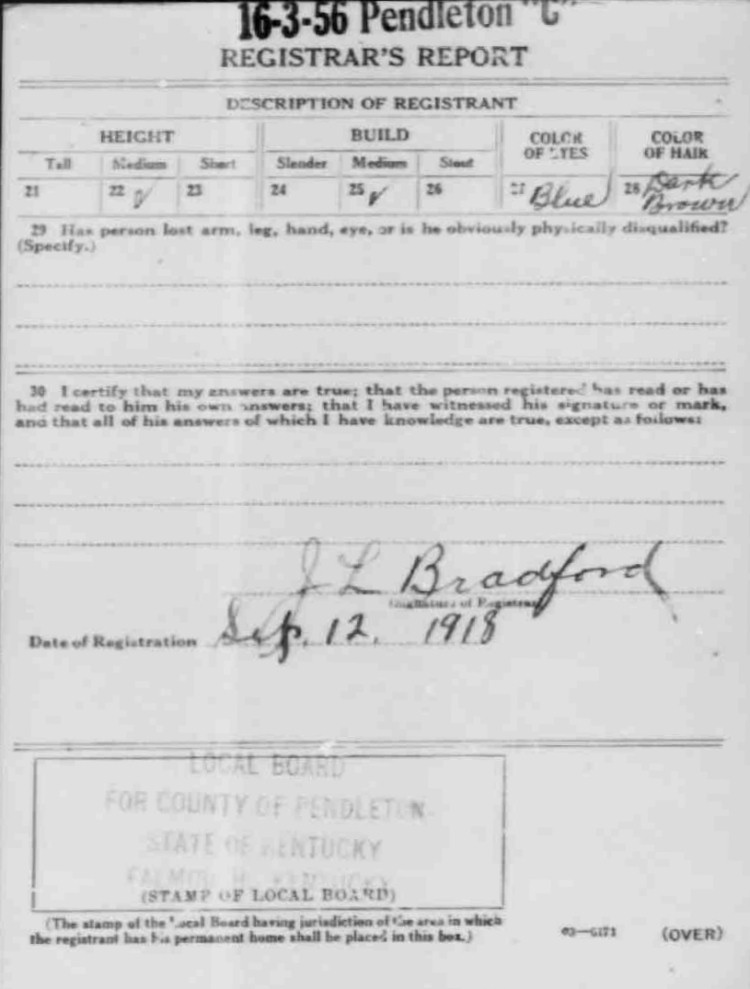 16-3-56 Pendleton "C"
REGISTRAR'S REPORT
DESCRIPTION OF REGISTRANT
HEIGHT BUILD COLOR OF EYES COLOR OF HAIR
Tall Medium Short Slender Medium Stout
21 22 ✓ 23 24 25 ✓ 26 27 Blue 28 Dark Brown
29 Has person lost arm, leg, hand, eye, or is he obviously physically disqualified?
(Specify.)
30 I certify that my answers are true; that the person registered has read or has
had read to him his own answers; that I have witnessed his signature or mark,
and that all of his answers of which I have knowledge are true, except as follows:
J L Bradford
(Signature of Registrar)
Date of Registration Sep. 12, 1918
LOCAL BOARD
FOR COUNTY OF PENDLETON
STATE OF KENTUCKY
FALMOUTH, KENTUCKY
(STAMP OF LOCAL BOARD)
(The stamp of the Local Board having jurisdiction of the area in which
the registrant has his permanent home shall be placed in this box.)
03—6171 (OVER)